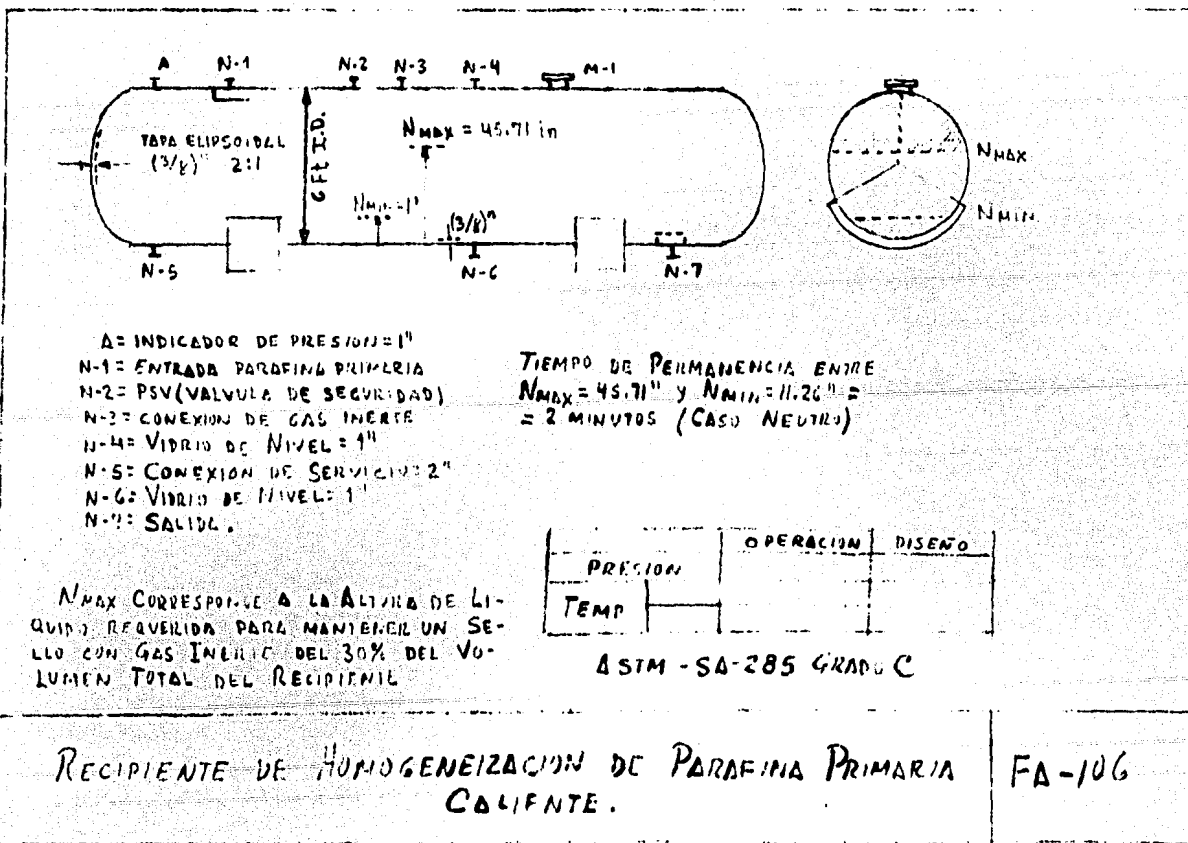 A N-1 N-2 N-3 N-4 M-1
TAPA ELIPSOIDAL
(3/8)" 2:1
6 Ft I.D.
NMAX = 45.71 in
NMIN=1'
(3/8)"
N-5 N-6 N-7
NMAX
NMIN
A= INDICADOR DE PRESION=1"
N-1= ENTRADA PARAFINA PRIMARIA
N-2= PSV (VALVULA DE SEGURIDAD)
N-3= CONEXION DE GAS INERTE
N-4= VIDRIO DE NIVEL= 1"
N-5= CONEXION DE SERVICIO= 2"
N-6= VIDRIO DE NIVEL= 1"
N-7= SALIDA.
TIEMPO DE PERMANENCIA ENTRE
NMAX = 45.71" y NMIN=11.26" =
= 2 MINUTOS (CASO NEUTRO)
OPERACION DISEÑO
PRESION
TEMP
ASTM -SA-285 GRADO C
NMAX CORRESPONDE A LA ALTURA DE LI-
QUIDO REQUERIDA PARA MANTENER UN SE-
LLO CON GAS INERTE DEL 30% DEL VO-
LUMEN TOTAL DEL RECIPIENTE
RECIPIENTE DE HOMOGENEIZACION DE PARAFINA PRIMARIA
CALIENTE.
FA-106